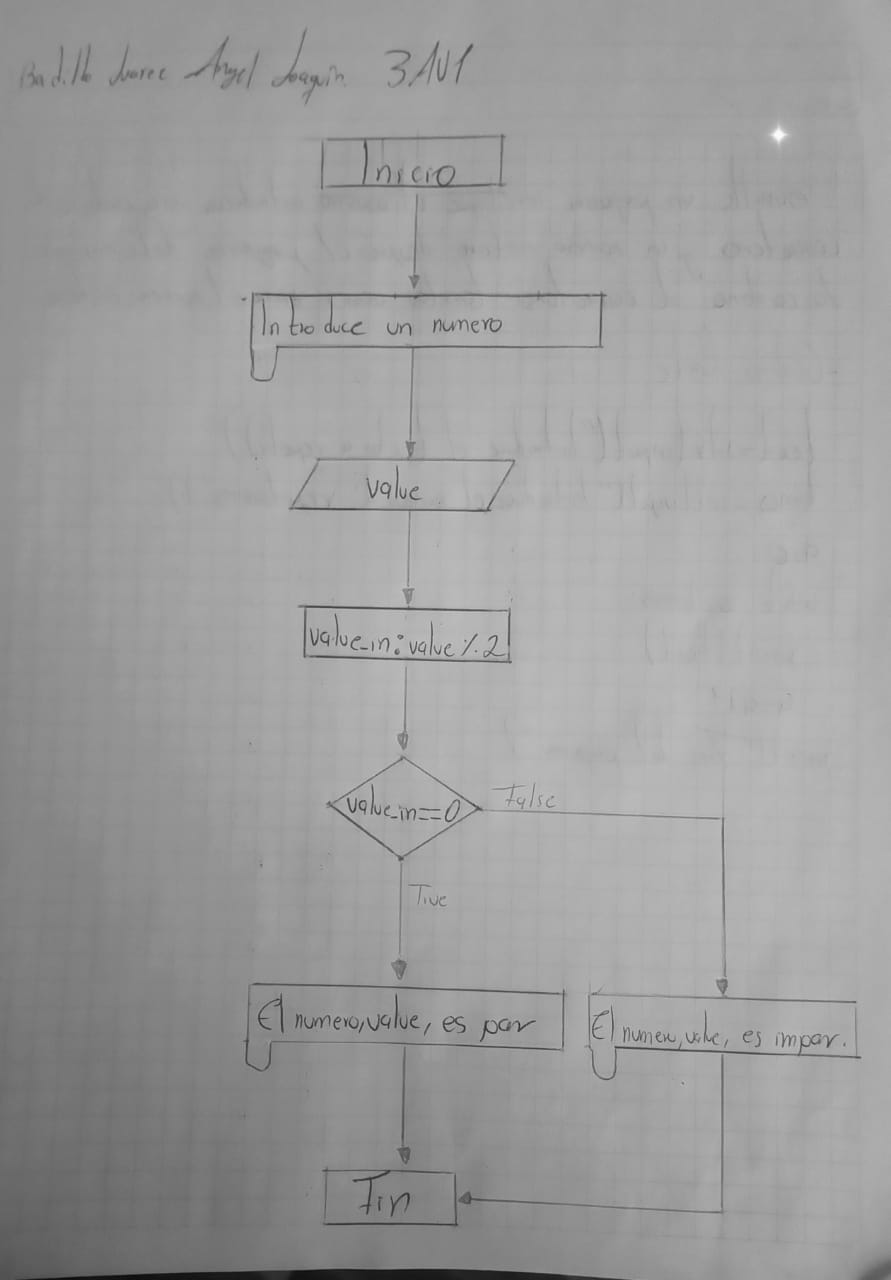 Badillo Juarez Angel Joaquin 3AV1
Inicio
Introduce un numero
value
value_in: value % 2
value_in==0
False
True
El numero, value, es par
El numero, value, es impar.
Fin